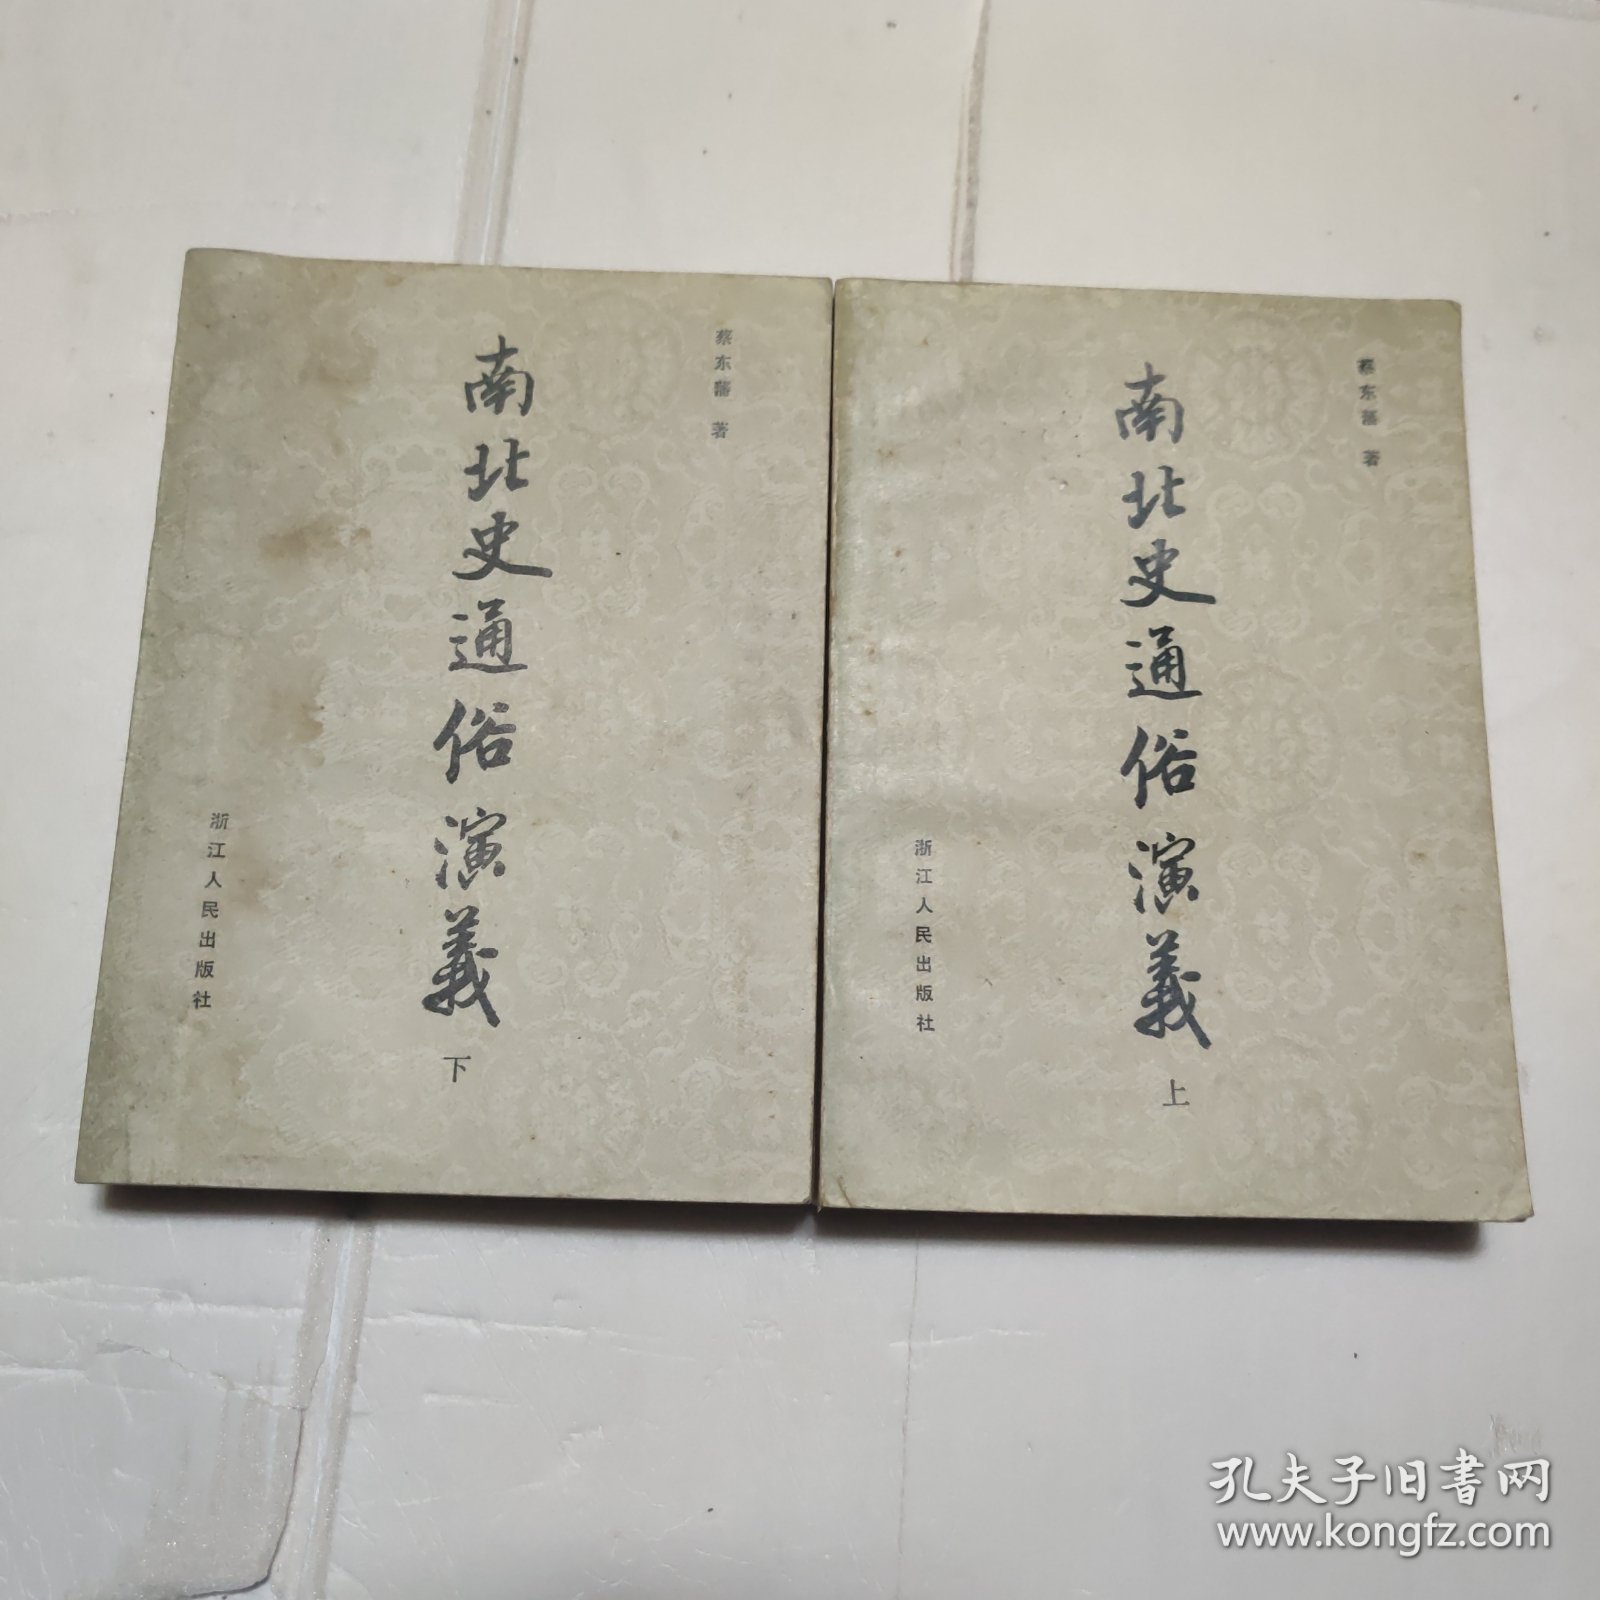 蔡东藩 著
南北史通俗演義
下
浙江人民出版社
蔡东藩 著
南北史通俗演義
上
浙江人民出版社
孔夫子旧书网
www.kongfz.com